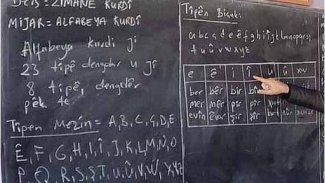 Ders= ZIMANÊ KURDÎ
MIJAR= ALFABEYA KURDÎ
Alfabeya kurdî ji
23 tîpê dengdar û jî
8 tîpê dengdêr
pêk tê
Tîpên Mezin= A, B, C, Ç, D, E
Ê, F, G, H, I, Î, J, K, L, M, N, O
P, Q, R, S, Ş, T, U, Û, V, W, X, Y, Z
Tîpên Biçûk:
a b c ç d e ê f g h i î j k l m n o p q r s ş
t u û v w x y z
e ê i î u û xw
ber bêr bir
mer mêr
evîn êvar